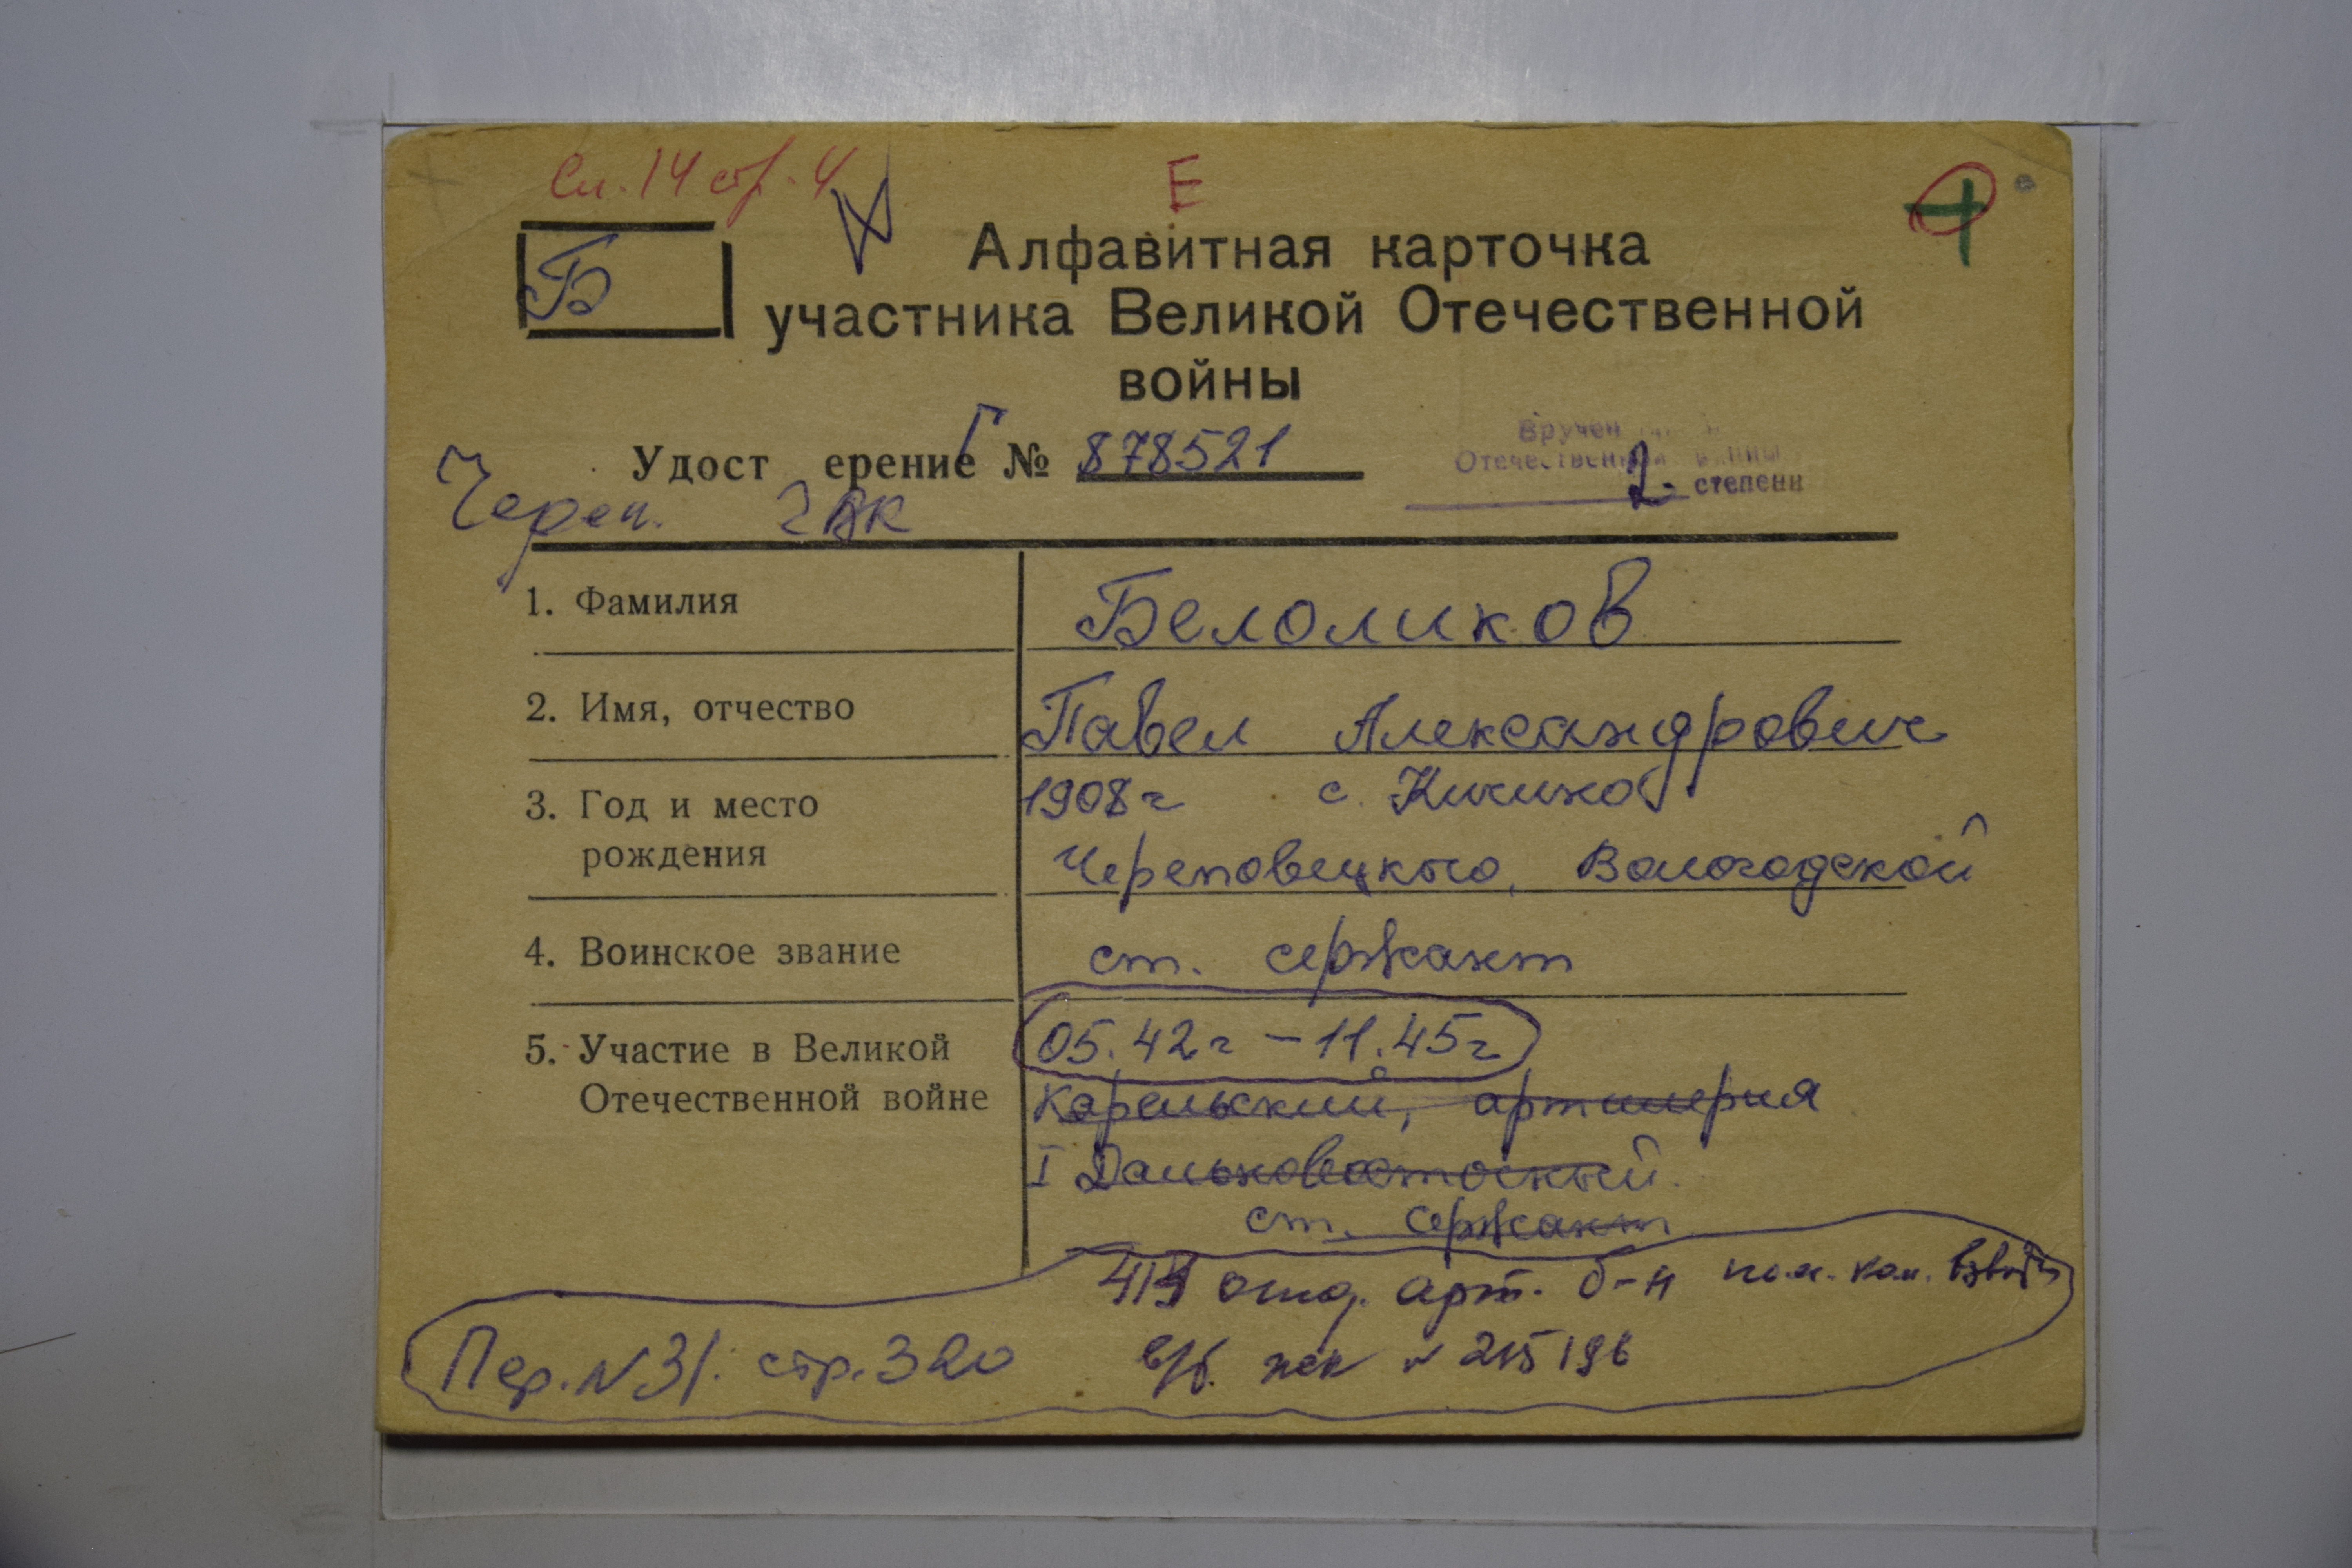 Сп. 14 стр. 4
Е
Б
Алфавитная карточка
участника Великой Отечественной
войны
Г
Удост ерение № 878521
Вручен
Отечественной войны
2 степени
Череп. ГВК
1. Фамилия
Белоликов
2. Имя, отчество
Павел Александрович
3. Год и место
рождения
1908г с.
Череповецкого, Вологодской
4. Воинское звание
ст. сержант
5. Участие в Великой
Отечественной войне
05.42г - 11.45г
Карельский, артилерия
I Дальновосточный
ст. сержант
отд. арт. б-н пом. ком. взвода
Пер. N31. стр. 320
в/б. N 215196